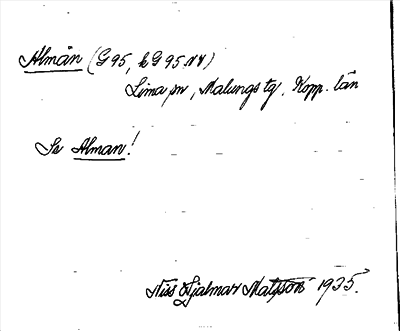 Almån (G95, bG95NV)
Lima sn, Malungs tg, Kopp. län
Se Alman!
Nils Hjalmar Matsson 1935.